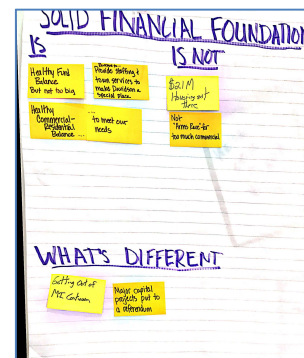 SOLID FINANCIAL FOUNDATION
IS
IS NOT
Healthy Fund
Balance
But not too big
Provide staffing &
town services to
make Davidson a
special place
$21M
Housing out
there
Healthy
Commercial-
Residential
Balance ...
... to meet our
needs
Not
"Arms Race" for
too much commercial
WHAT'S DIFFERENT
Getting out of
MI
Major capital
projects put to
a referendum